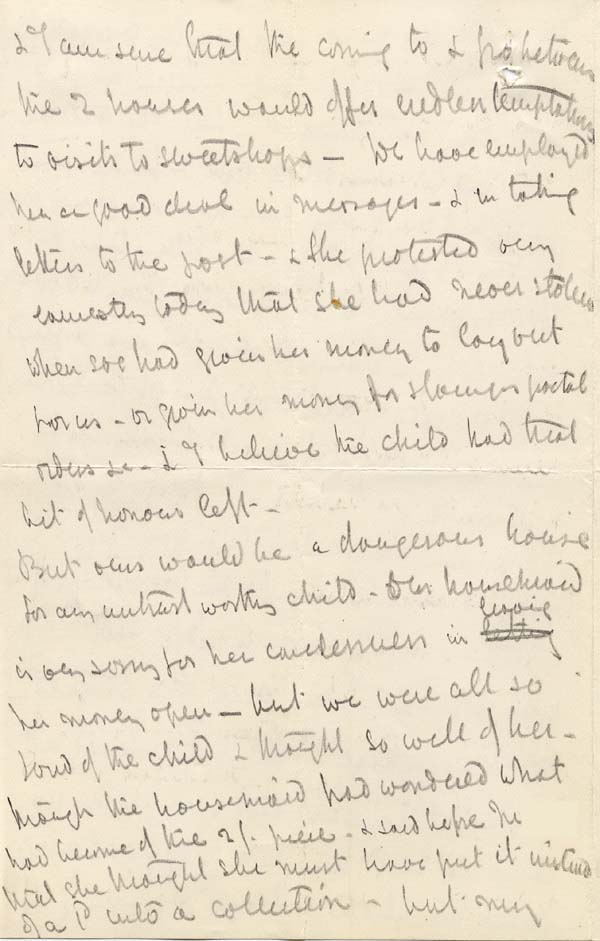 & I am sure that the coming to & fro between
the 2 houses would offer endless temptations
to visits to sweetshops – We have employed
her a good deal in messages – & in taking
letters to the post – & she protested very
earnestly today that she had never stolen
when we had given her money to lay out
for us – or given her money for stamps postal
orders &c – & I believe the child had that
bit of honour left –
But ours would be a dangerous house
for any untrustworthy child – Our housemaid
leaving
is very sorry for her carelessness in letting
her money open – but we were all so
fond of the child & thought so well of her –
though the housemaid had wondered what
had become of the 2/- piece – & said before
that she thought she must have put it instead
of a 1d into a collection – but